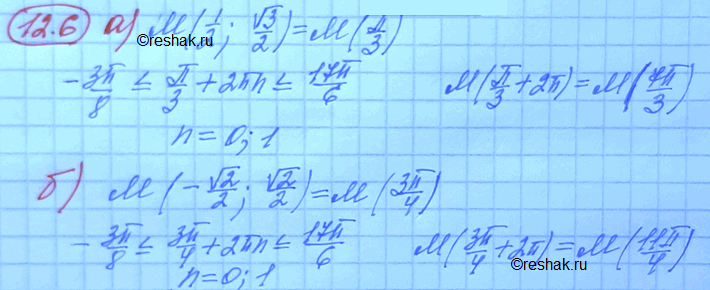 12.6 а) M(1/2; √3/2) = M(π/3)
©reshak.ru
-3π/8 ≤ π/3 + 2πn ≤ 17π/6 M(π/3 + 2π) = M(7π/3)
n = 0; 1
б) M(-√2/2; √2/2) = M(3π/4)
-3π/8 ≤ 3π/4 + 2πn ≤ 17π/6 M(3π/4 + 2π) = M(11π/4)
n = 0; 1
©reshak.ru